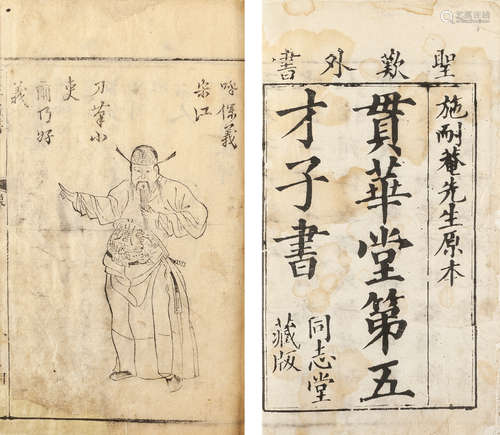 呼保義
宋江
刀筆小
吏
爾乃好
義
聖歎外書
施耐菴先生原本
貫華堂第五
才子書
同志堂
藏版